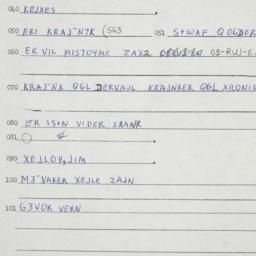 040 KEJXES
050 ERI KRAJ~N7K (563 051 S+WAF QOLDER
060 ER VIL MISTOYME ZAX2 08-RUJ-E
070 KRAJ~NK QGL DERVAJL KRAJNKER QGL XRONIS
080 ER IS+N VIDER KRANR
081
090 XEJLOY,JIM
100 M3~VAKER XEJLE ZAJN
101 G3VOR VERN